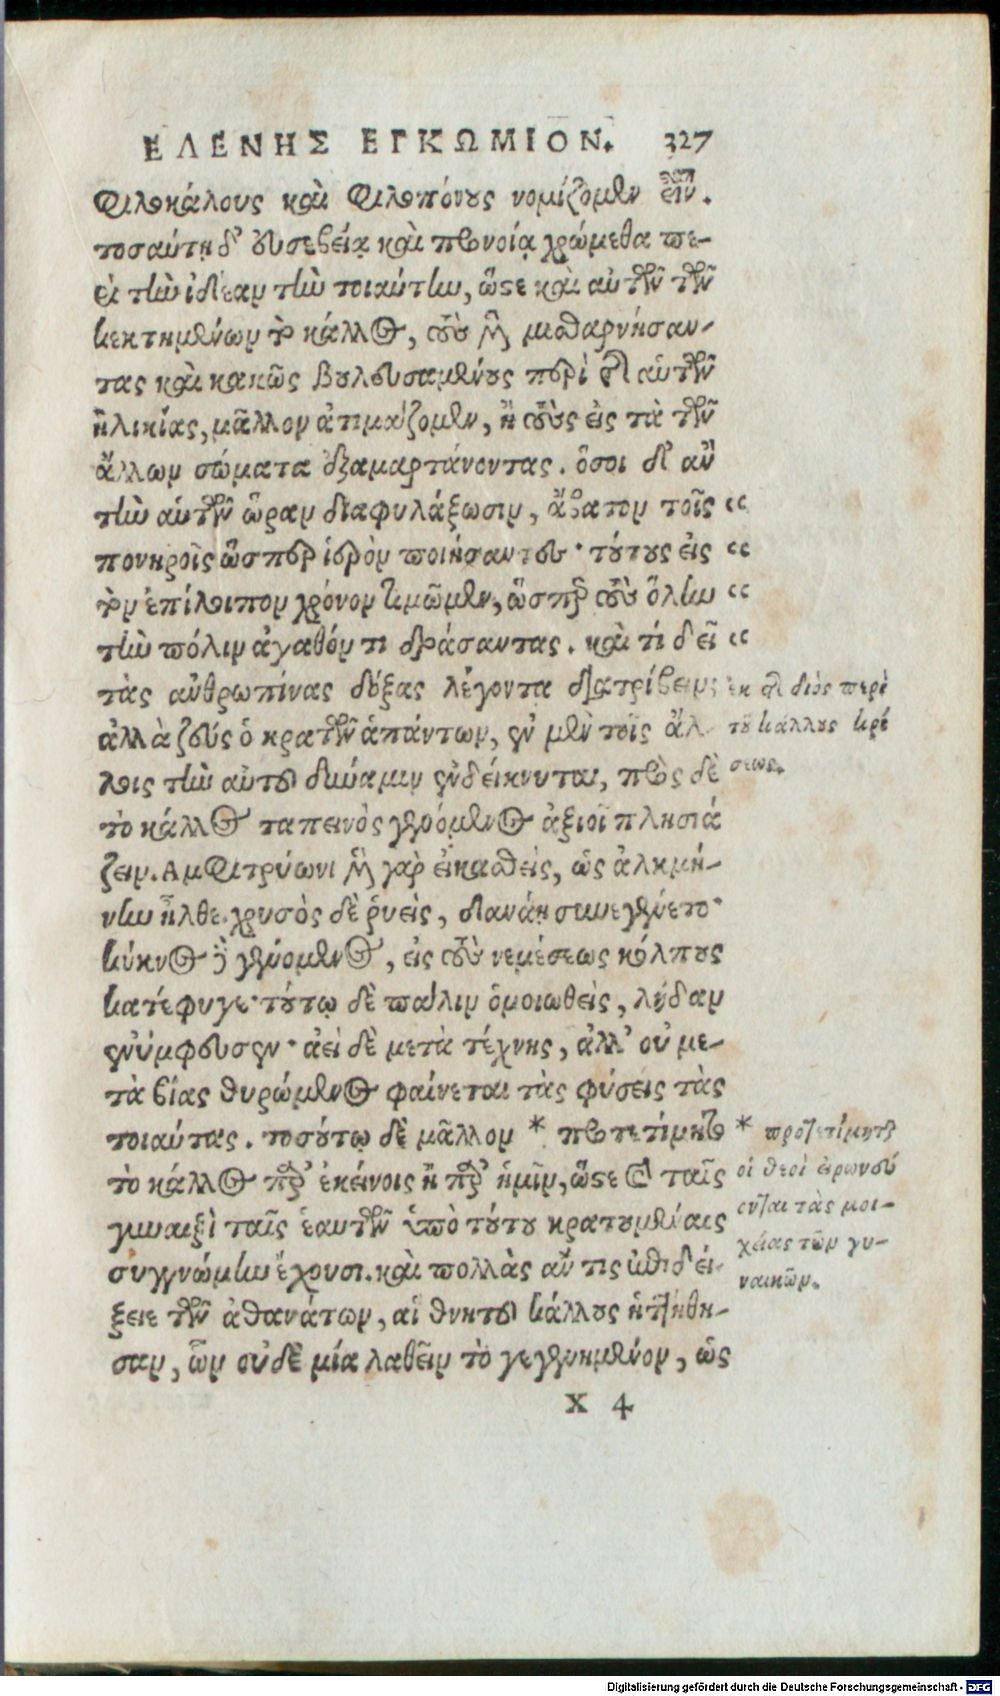 ΕΛΕΝΗΣ ΕΓΚΩΜΙΟΝ. 327
φιλοκάλους καὶ φιλοπόνους νομίζομεν εἶναι.
τοσαύτῃ δ' εὐσεβείᾳ καὶ προνοίᾳ χρώμεθα πε-
ρὶ τὴν ἰδέαν τὴν τοιαύτην, ὥστε καὶ αὐτῶν τῶν
κεκτημένων τὸ κάλλος, τοὺς μὲν μισθαρνήσαν-
τας καὶ κακῶς βουλευσαμένους περὶ τῆς αὑτῶν
ἡλικίας, μᾶλλον ἀτιμάζομεν, ἢ τοὺς εἰς τὰ τῶν
ἄλλων σώματα ἐξαμαρτάνοντας. ὅσοι δ' ἂν
τὴν αὑτῶν ὥραν διαφυλάξωσιν, ἄβατον τοῖς "
πονηροῖς ὥσπερ ἱερὸν ποιήσαντες· τούτους εἰς "
τὸν ἐπίλοιπον χρόνον τιμῶμεν, ὥσπερ τοὺς ὅλην "
τὴν πόλιν ἀγαθόν τι δράσαντας. καὶ τί δεῖ "
τὰς ἀνθρωπίνας δόξας λέγοντα διατρίβειν;
ἀλλὰ ζεὺς ὁ κρατῶν ἁπάντων, ἐν μὲν τοῖς ἄλ
λοις τὴν αὐτοῦ δύναμιν ἐνδείκνυται, πρὸς δὲ
τὸ κάλλος ταπεινὸς γενόμενος ἀξιοῖ πλησιά
ζειν. Αμφιτρύωνι μὲν γὰρ εἰκασθεὶς, ὡς ἀλκμή-
νην ἦλθε. χρυσὸς δὲ ῥυεὶς, δανάῃ συνεγένετο·
κύκνος δὲ γενόμενος, εἰς τοὺς νεμέσεως κόλπους
κατέφυγε· τούτῳ δὲ πάλιν ὁμοιωθεὶς, λήδαν
ἐνύμφευσεν· ἀεὶ δὲ μετὰ τέχνης, ἀλλ' οὐ με-
τὰ βίας θηρώμενος φαίνεται τὰς φύσεις τὰς
τοιαύτας. τοσούτῳ δὲ μᾶλλον * προτετίμηται
τὸ κάλλος παρ' ἐκείνοις ἢ παρ' ἡμῖν, ὥστε καὶ ταῖς
γυναιξὶ ταῖς ἑαυτῶν ὑπὸ τούτου κρατουμέναις
συγγνώμην ἔχουσι. καὶ πολλὰς ἄν τις ἐπιδεί-
ξειε τῶν ἀθανάτων, αἳ θνητοῦ κάλλους ἡττήθη-
σαν, ὧν οὐδὲ μία λαθεῖν τὸ γεγενημένον, ὡς
x 4
ἐκ τῆς διὸς περὶ
τοῦ κάλλους κρί
σεως.
* προτετίμηται
οἱ θεοὶ
τὰς μοι-
χείας τῶν γυ-
ναικῶν.
Digitalisierung gefördert durch die Deutsche Forschungsgemeinschaft - DFG